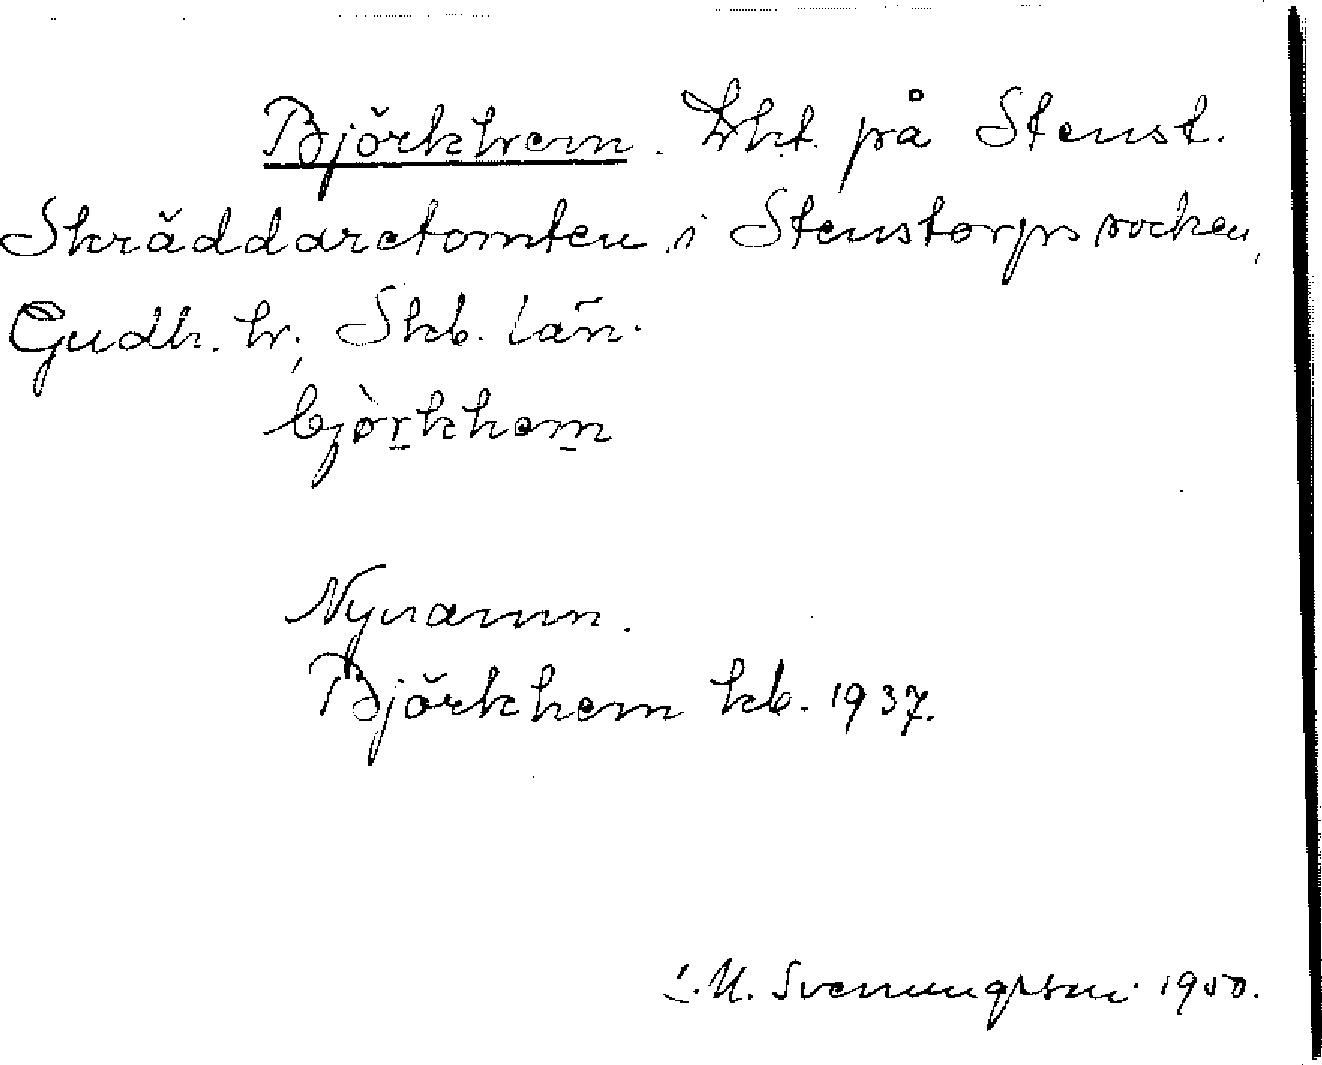 Björkhem. Lht. på Stenst.
Skräddaretomten i Stenstorps socken,
Gudh. hr, Skb. län.
bjòrkhem
Nynamn.
Björkhem kb. 1937.
M. Svenungsson 1950.